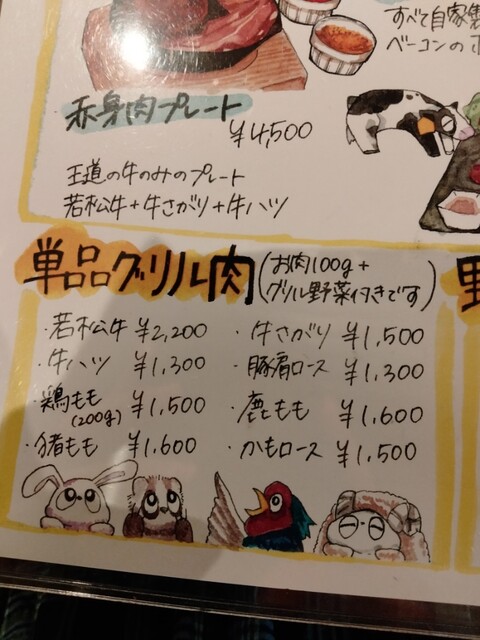 すべて自家製
ベーコンの
赤身肉プレート
¥4,500
王道の牛のみのプレート
若松牛+牛さがり+牛ハツ
単品グリル肉
(お肉100g+
グリル野菜付きです)
・若松牛 ¥2,200
・牛ハツ ¥1,300
・鶏もも ¥1,500
(200g)
・猪もも ¥1,600
・牛さがり ¥1,500
・豚肩ロース ¥1,300
・鹿もも ¥1,600
・かもロース ¥1,500